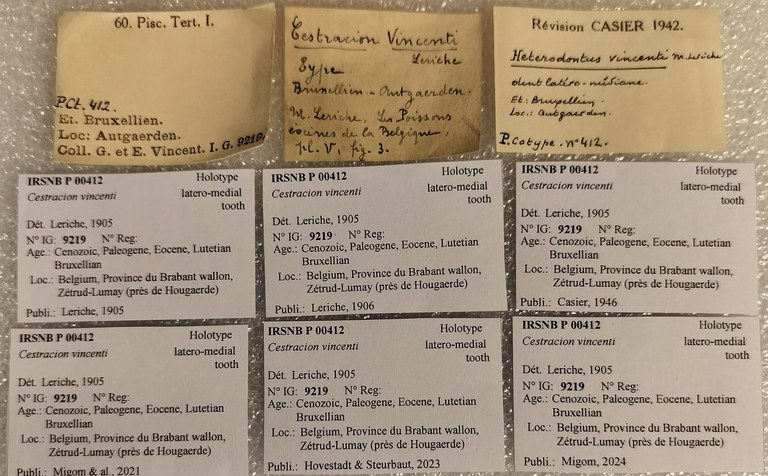 60. Pisc. Tert. I.
P.Ct. 412.
Et. Bruxellien.
Loc: Autgaerden.
Coll. G. et E. Vincent. I. G. 9219.
Cestracion Vincenti
Leriche
Type.
Bruxellien. - Autgaerden.
M. Leriche, Les Poissons
éocènes de la Belgique,
pl. V, fig. 3.
Révision CASIER 1942.
Heterodontus vincenti M. Leriche
dent latéro-médiane.
Et: Bruxellien.
Loc.: Autgaerden.
P. cotype. n° 412.
IRSNB P 00412 Holotype
Cestracion vincenti latero-medial
tooth
Dét. Leriche, 1905
N° IG: 9219 N° Reg:
Age.: Cenozoic, Paleogene, Eocene, Lutetian
Bruxellian
Loc.: Belgium, Province du Brabant wallon,
Zétrud-Lumay (près de Hougaerde)
Publi.: Leriche, 1905
IRSNB P 00412 Holotype
Cestracion vincenti latero-medial
tooth
Dét. Leriche, 1905
N° IG: 9219 N° Reg:
Age.: Cenozoic, Paleogene, Eocene, Lutetian
Bruxellian
Loc.: Belgium, Province du Brabant wallon,
Zétrud-Lumay (près de Hougaerde)
Publi.: Leriche, 1906
IRSNB P 00412 Holotype
Cestracion vincenti latero-medial
tooth
Dét. Leriche, 1905
N° IG: 9219 N° Reg:
Age.: Cenozoic, Paleogene, Eocene, Lutetian
Bruxellian
Loc.: Belgium, Province du Brabant wallon,
Zétrud-Lumay (près de Hougaerde)
Publi.: Casier, 1946
IRSNB P 00412 Holotype
Cestracion vincenti latero-medial
tooth
Dét. Leriche, 1905
N° IG: 9219 N° Reg:
Age.: Cenozoic, Paleogene, Eocene, Lutetian
Bruxellian
Loc.: Belgium, Province du Brabant wallon,
Zétrud-Lumay (près de Hougaerde)
Publi.: Migom & al., 2021
IRSNB P 00412 Holotype
Cestracion vincenti latero-medial
tooth
Dét. Leriche, 1905
N° IG: 9219 N° Reg:
Age.: Cenozoic, Paleogene, Eocene, Lutetian
Bruxellian
Loc.: Belgium, Province du Brabant wallon,
Zétrud-Lumay (près de Hougaerde)
Publi.: Hovestadt & Steurbaut, 2023
IRSNB P 00412 Holotype
Cestracion vincenti latero-medial
tooth
Dét. Leriche, 1905
N° IG: 9219 N° Reg:
Age.: Cenozoic, Paleogene, Eocene, Lutetian
Bruxellian
Loc.: Belgium, Province du Brabant wallon,
Zétrud-Lumay (près de Hougaerde)
Publi.: Migom, 2024